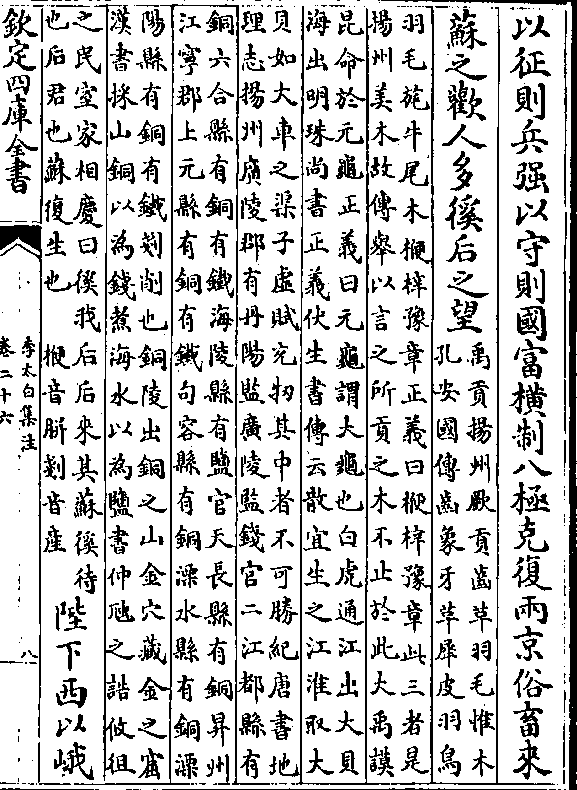 以征則兵强以守則國富横制八極克復兩京俗畜來
蘇之歡人多徯后之望
禹貢揚州厥貢齒革羽毛惟木
孔安國傳齒象牙革犀皮羽鳥
羽毛旄牛尾木楩梓豫章正義曰楩梓豫章此三者是
揚州美木故傳舉以言之所貢之木不止於此大禹謨
昆命於元龜正義曰元龜謂大龜也白虎通江出大貝
海出明珠尚書正義伏生書傳云散宜生之江淮取大
貝如大車之渠子虚賦充牣其中者不可勝紀唐書地
理志揚州廣陵郡有丹陽監廣陵監錢官二江都縣有
銅六合縣有銅有鐵海陵縣有鹽官天長縣有銅昇州
江寧郡上元縣有銅有鐵句容縣有銅溧水縣有銅溧
陽縣有銅有鐵剗削也銅陵出銅之山金穴藏金之窟
漢書採山銅以為錢煮海水以為鹽書仲虺之誥攸徂
之民室家相慶曰徯我后后來其蘇徯待
也后君也蘇復生也 楩音駢剗音産
陛下西以峨
欽定四庫全書
李太白集注
卷二十六
八